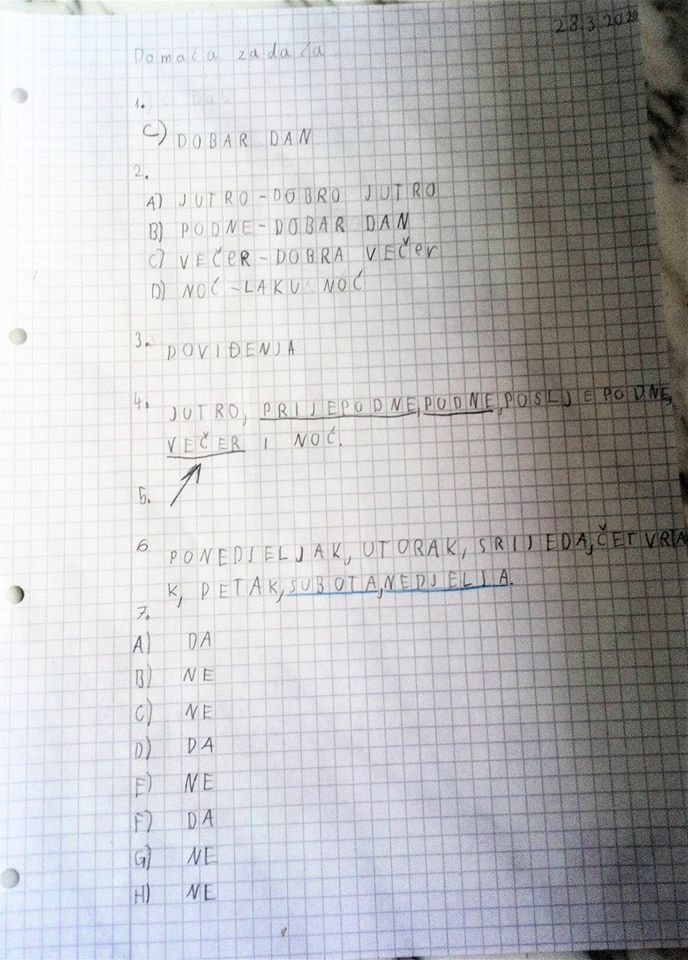 28.3.2020
Domaća zadaća
1.
C) DOBAR DAN
2.
A) JUTRO-DOBRO JUTRO
B) PODNE-DOBAR DAN
C) VEČeR-DOBRA VEČer
D) NOĆ-LAKU NOĆ
3. DOVIĐENJA
4. JUTRO, PRIJEPODNE, PODNE, POSLJEPODNE,
VEČER I NOĆ.
5.
6 PONEDJELJAK, UTORAK, SRIJEDA, ČETVRTA
K, PETAK, SUBOTA, NEDJELJA.
7.
A) DA
B) NE
C) NE
D) DA
E) NE
F) DA
G) NE
H) NE